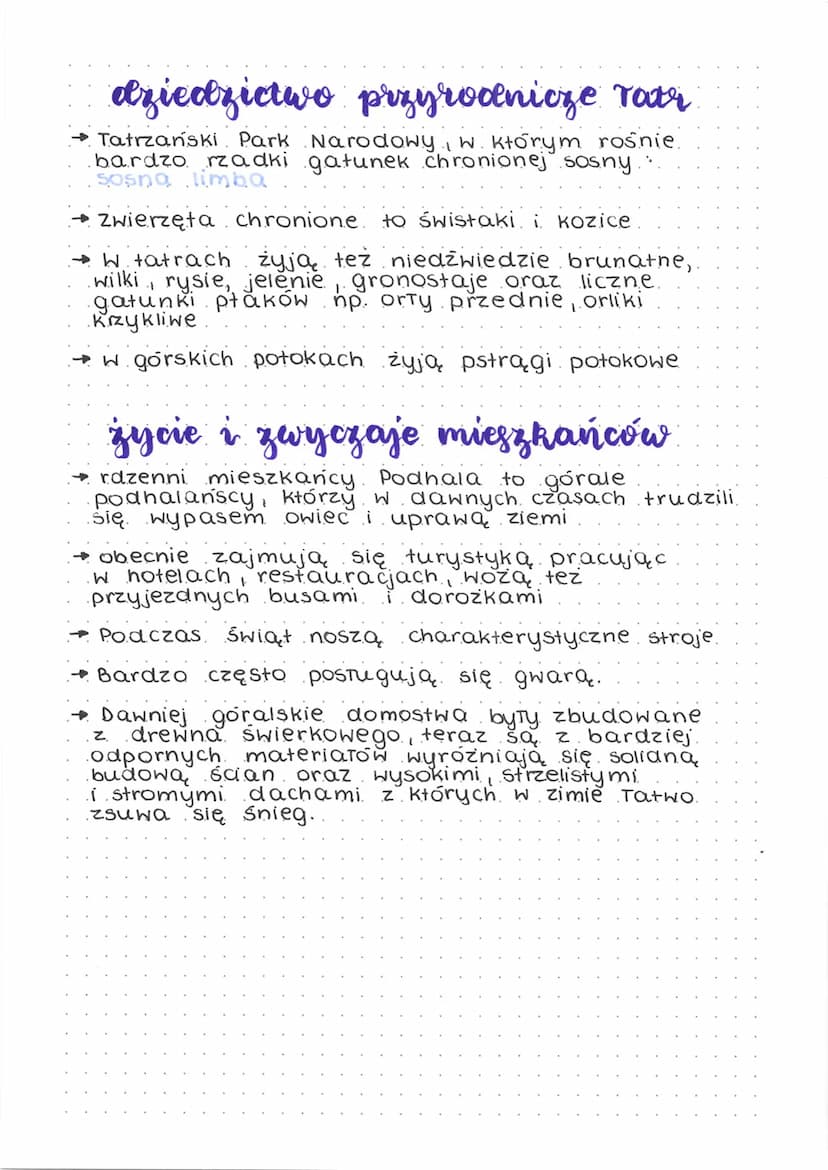 dziedzictwo przyrodnicze Tatr
→ Tatrzański Park Narodowy, w którym rośnie
bardzo rzadki gatunek chronionej sosny:
sosna limba
→ zwierzęta chronione to świstaki i kozice
→ w tatrach żyją też niedźwiedzie brunatne,
wilki, rysie, jelenie, gronostaje oraz liczne
gatunki ptaków np. orły przednie, orliki
krzykliwe
→ w górskich potokach żyją pstrągi potokowe
życie i zwyczaje mieszkańców
→ rdzenni mieszkańcy Podhala to górale
podhalańscy, którzy w dawnych czasach trudzili
się wypasem owiec i uprawą ziemi
→ obecnie zajmują się turystyką pracując
w hotelach, restauracjach, wożą też
przyjezdnych busami i dorożkami
→ Podczas świąt noszą charakterystyczne stroje
→ Bardzo często posługują się gwarą.
→ Dawniej góralskie domostwa były zbudowane
z drewna świerkowego, teraz są z bardziej
odpornych materiałów wyróżniają się solidną
budową ścian oraz wysokimi, strzelistymi
i stromymi dachami z których w zimie łatwo
zsuwa się śnieg.